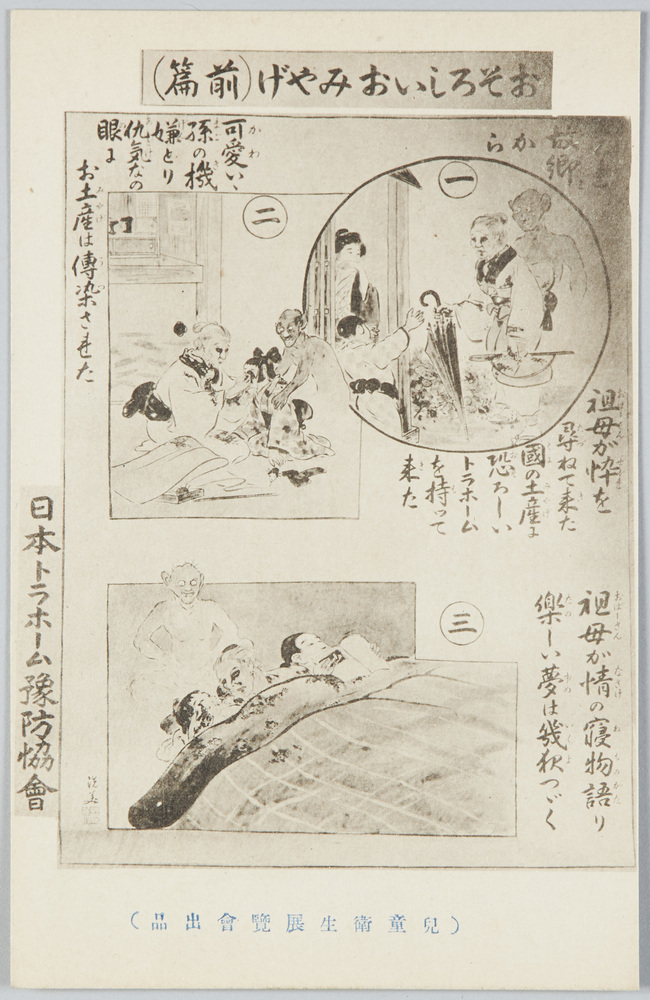 おそろしいおみやげ（前篇）
一
故郷
から
祖母が忰を
尋ねて来た
國の土産に
恐ろしい
トラホーム
を持って
来た
二
可愛いゝ
孫の機
嫌とり
仇気なの
眼に
お土産は傳染させた
三
祖母が情の寝物語り
楽しい夢は幾夜つゞく
日本トラホーム豫防協會
（兒童衛生展覽會出品）